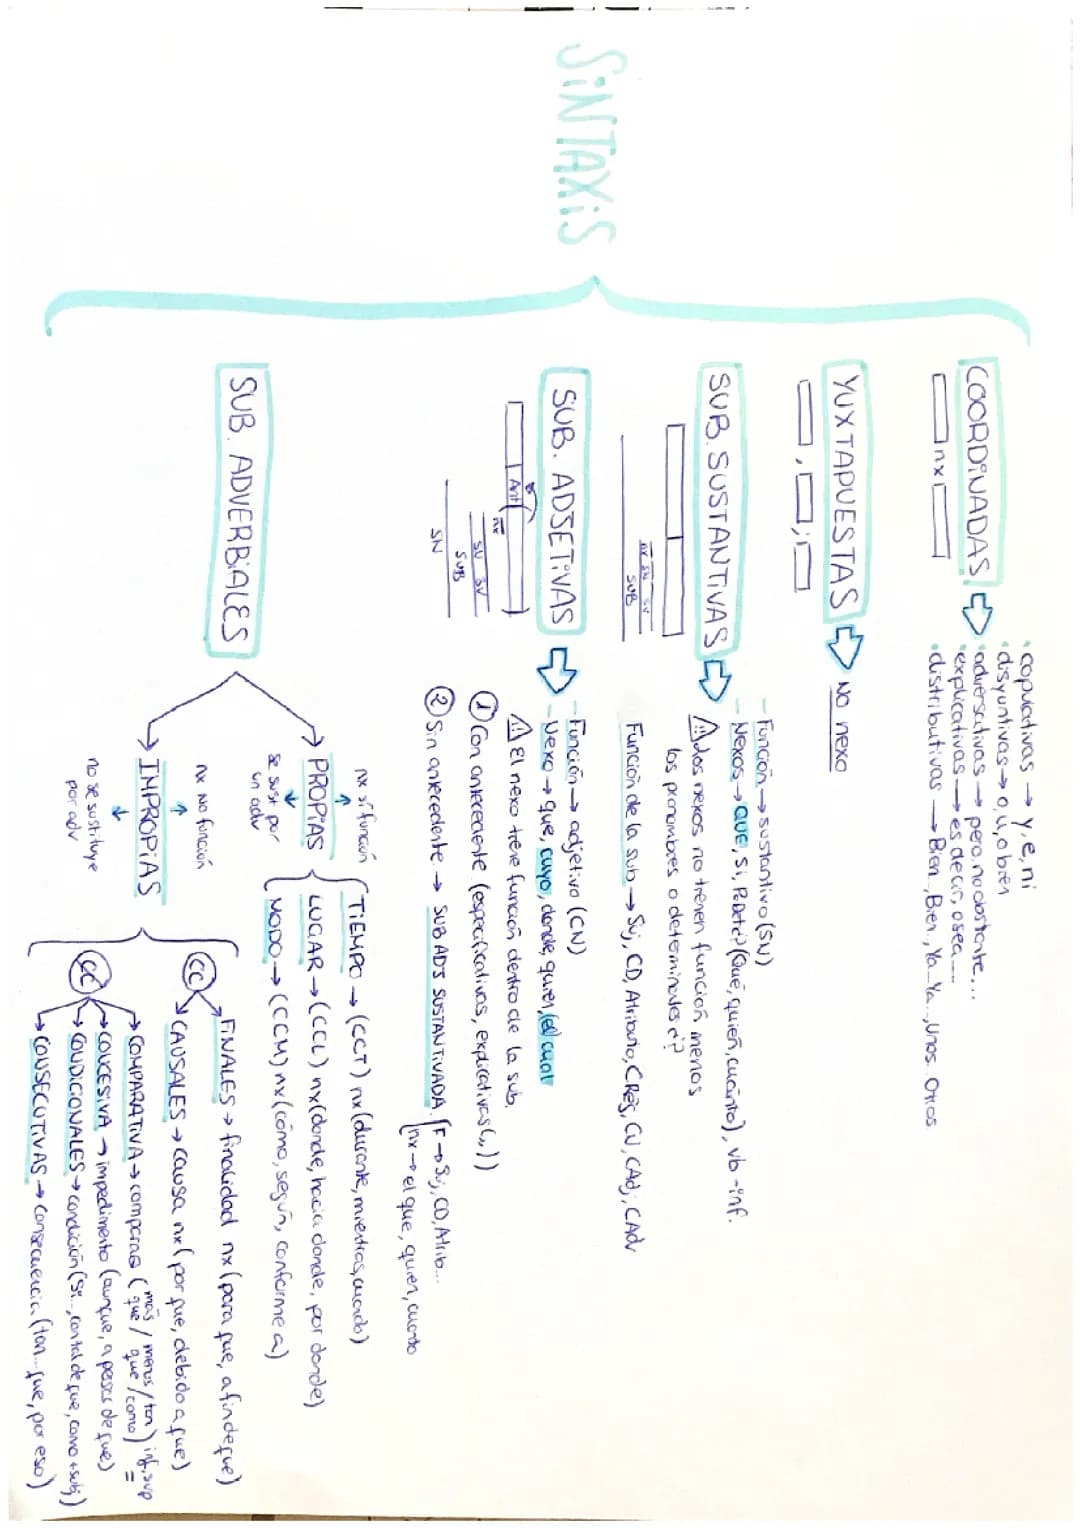 SiNTAXiS
COORDiNADAS
nx
• copulativas → y, e, ni
• disyuntivas → o, u, o bien
• adversativas → pero, no obstante, ...
• explicativas → es decir, o sea ...
• distributivas → Bien.., Bien.., Ya... Ya..., Unos.. Otros
YUXTAPUESTAS
, ;
No nexo
SUB. SUSTANTiVAS
nx SN SV
SUB
- Función → sustantivo (SN)
- Nexos → QUE, Si, (Qué, quién, cuánto), vb-inf.
⚠ los nexos no tienen función, menos
los pronombres o determinantes ¿?
Función de la sub → Suj, CD, Atributo, CRég, CN, CAdj, CAdv
SUB. ADJETiVAS
Ant
nx
SN SV
SUB
SN
- Función → adjetivo (CN)
- Nexo → que, cuyo, donde, quien, (el) cual
⚠ El nexo tiene función dentro de la sub.
① Con antecedente (especificativas, explicativas (,,))
② Sin antecedente. → SUB ADJ SUSTANTIVADA
F → Suj, CD, Atrib...
nx → el que, quien, cuanto
SUB. ADVERBiALES
nx sí función
PROPiAS
se sust por
un adv
TiEMPO → (CCT) nx (durante, mientras, cuando)
LUGAR → (CCL) nx (donde, hacia donde, por donde)
MODO → (CCM) nx (cómo, según, conforme a)
nx No función
IMPROPiAS
no se sustituye
por adv
CC
FiNALES → finalidad nx (para que, a fin de que)
CAUSALES → causa nx (por que, debido a que)
COMPARATiVA → comparas (más / menos / tan) inf, sup
que / que / como =
CC
CONCESiVA → impedimento (aunque, a pesar de que)
CONDiCiONALES → condición (Si..., con tal de que, como + subj)
CONSECUTiVAS → consecuencia (tan... que, por eso)